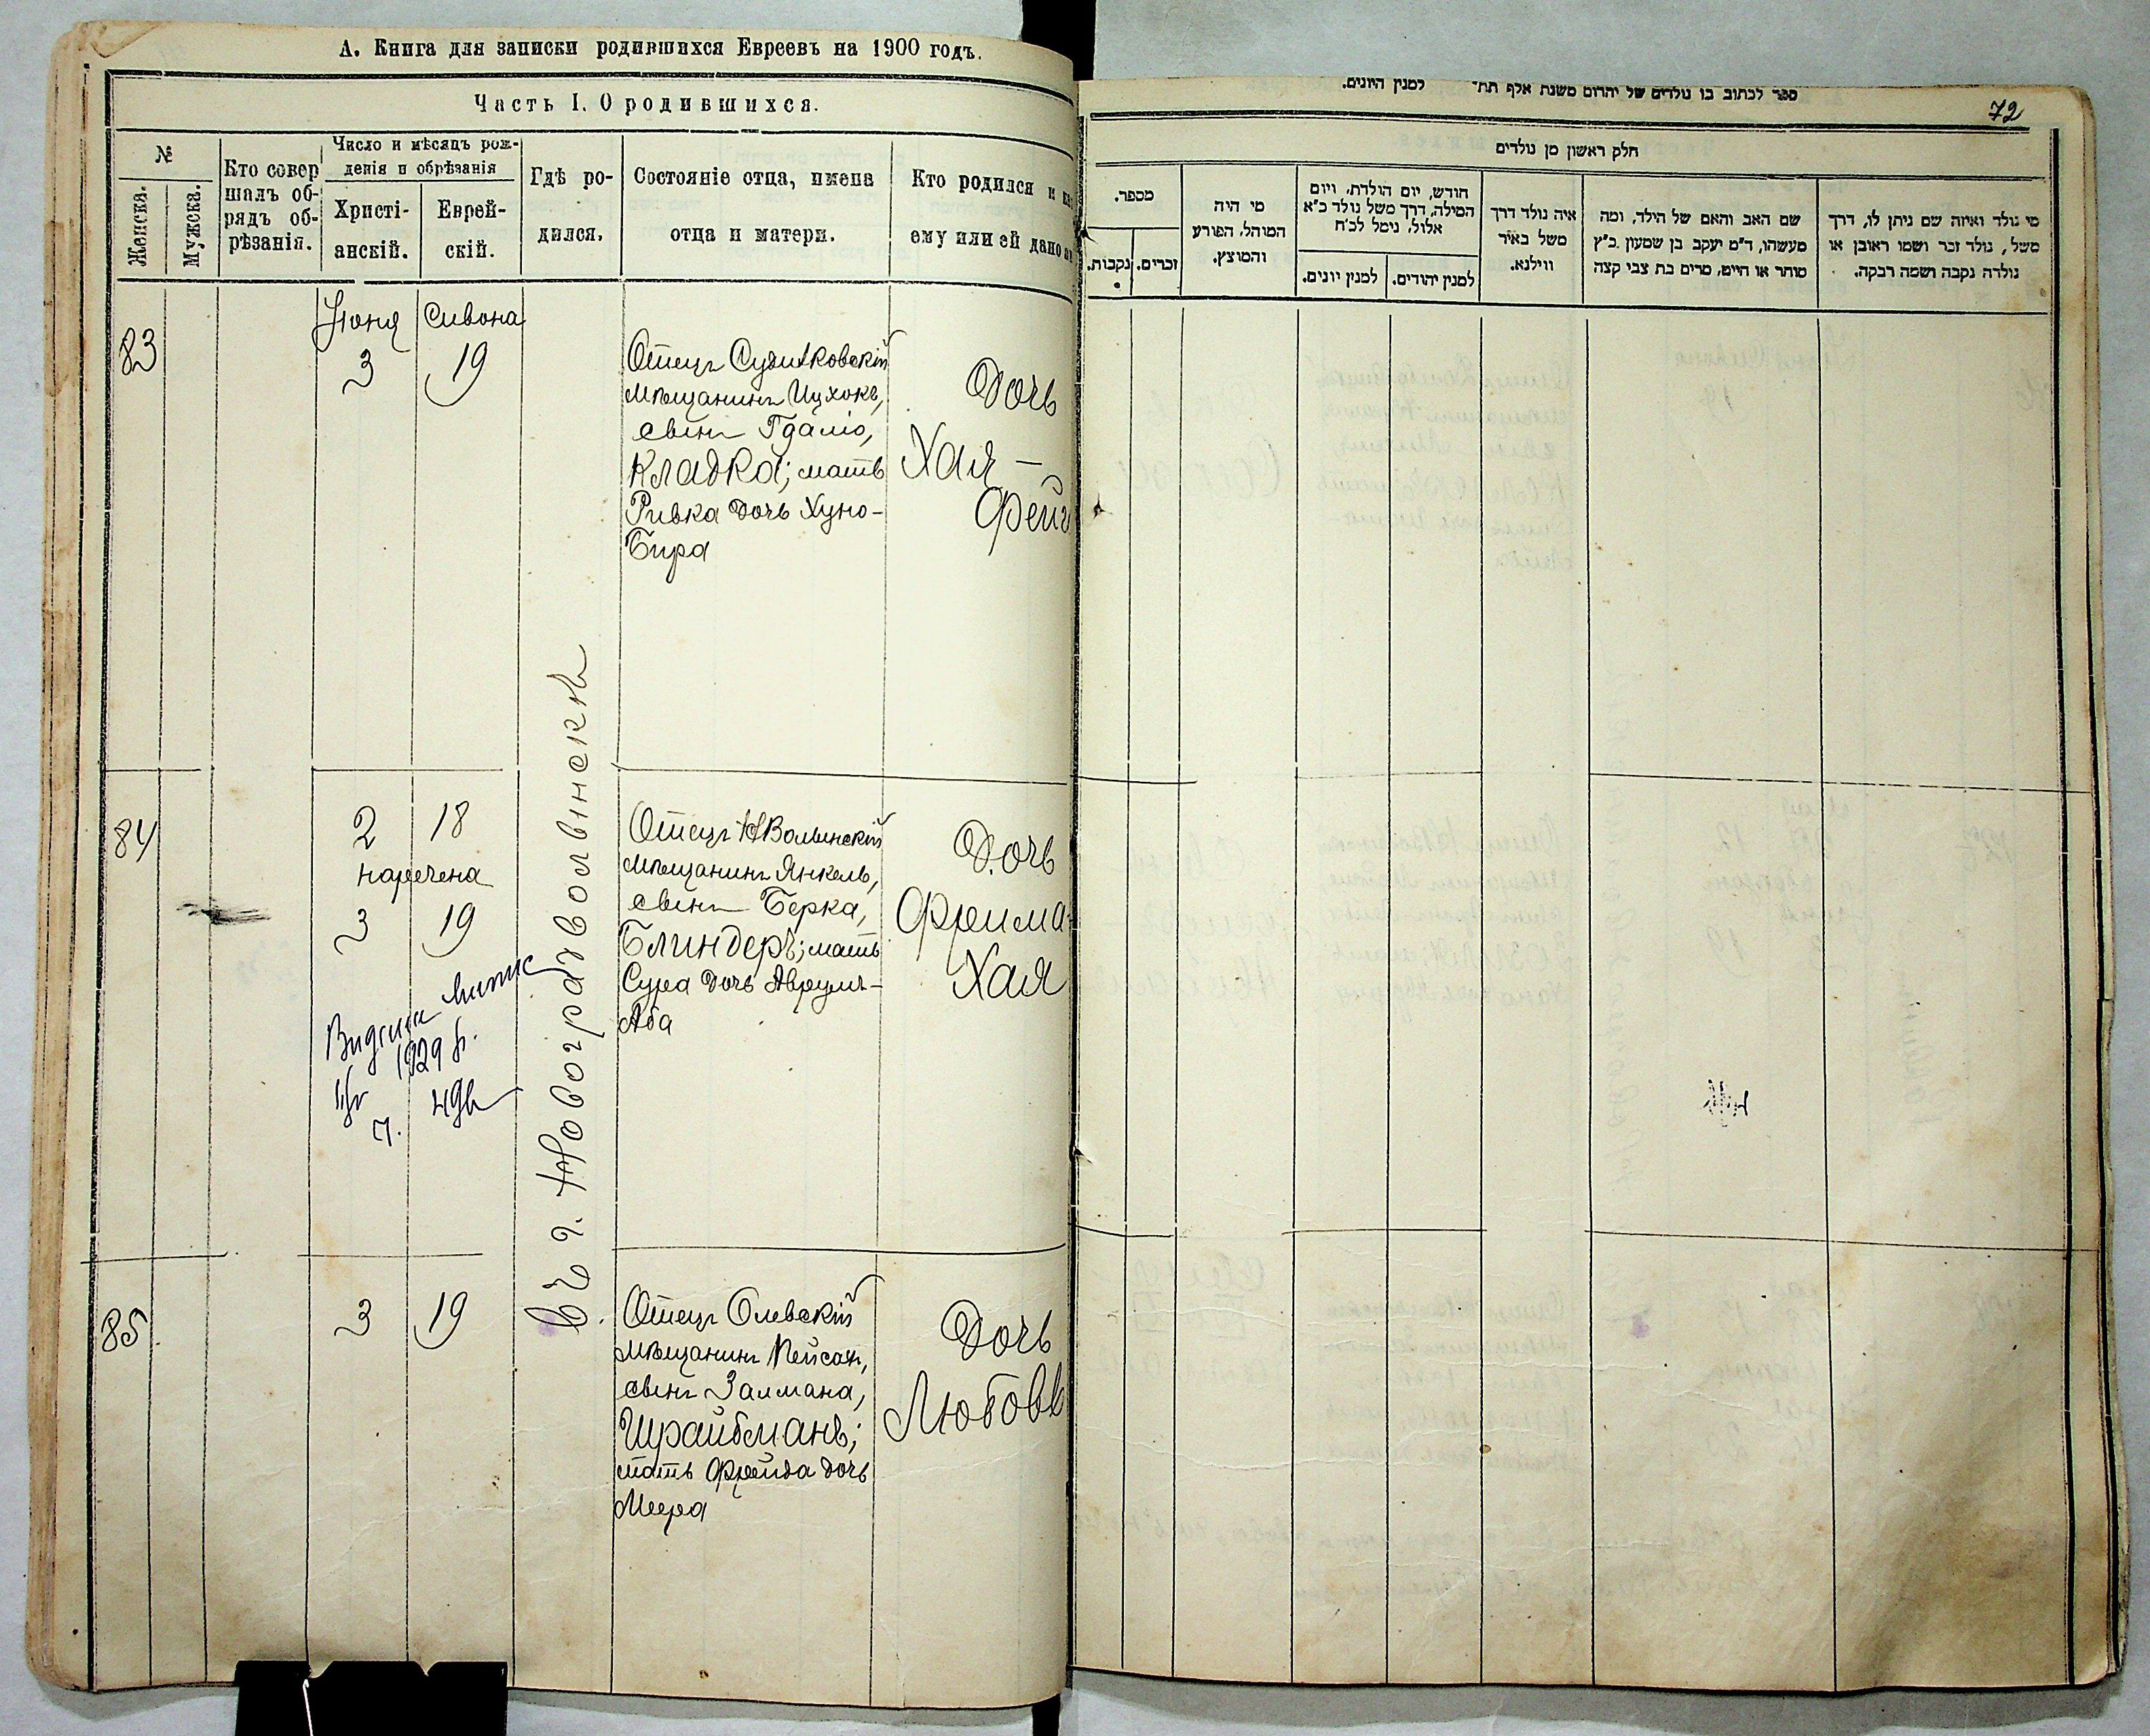 А. Книга для записки родившихся Евреевъ на 1900 годъ.
Часть I. О родившихся.
№
Женска.
Мужска.
Кто совер
шалъ об-
рядъ об-
рѣзанія.
Число и мѣсяцъ рож-
денія и обрѣзанія
Христі-
анскій.
Еврей-
скій.
Гдѣ ро-
дился.
Состояніе отца, имена
отца и матери.
Кто родился и
ему или ей дано
Іюня
Сивона
83
3
19
Отецъ Судилковскій
мѣщанинъ Ицхокъ,
сынъ Гдаліо,
Кладко; мать
Ривка дочь Хуно-
Бера
Дочь
Хая-
Фейг
Въ г. Новоградволынскѣ
84
2
18
наречена
3
19
1929 р.
Отецъ НВолынскій
мѣщанинъ Янкель,
сынъ Берка,
Блиндеръ; мать
Сура дочь Аврумъ-
Аба
Дочь
Фрима-
Хая
85
3
19
Отецъ Олевскій
мѣщанинъ Пейсах,
сынъ Залмана,
Шрайбманъ;
мать Фрейда дочь
Меера
Дочь
Любовь
ספר לכתוב בו נולדים של יהדום משנת אלף תת״ למנין היונים.
72
חלק ראשון מן נולדים
מספר.
נקבות.
זכרים.
מי היה
המוהל. הפורע
והמוצץ.
חודש, יום הולדת, ויום
המילה, דרך משל נולד כ״א
אלול, נימל לכ״ח
למנין יונים.
למנין יהודים.
איה נולד דרך
משל באיר
ווילנא.
שם האב והאם של הילד, ומה
מעשהו, ד״מ יעקב בן שמעון כ״ץ
סוחר או חייט, מרים בת צבי קצה
מי נולד ואיזה שם ניתן לו, דרך
משל, נולד זכר ושמו ראובן או
נולדה נקבה ושמה רבקה.